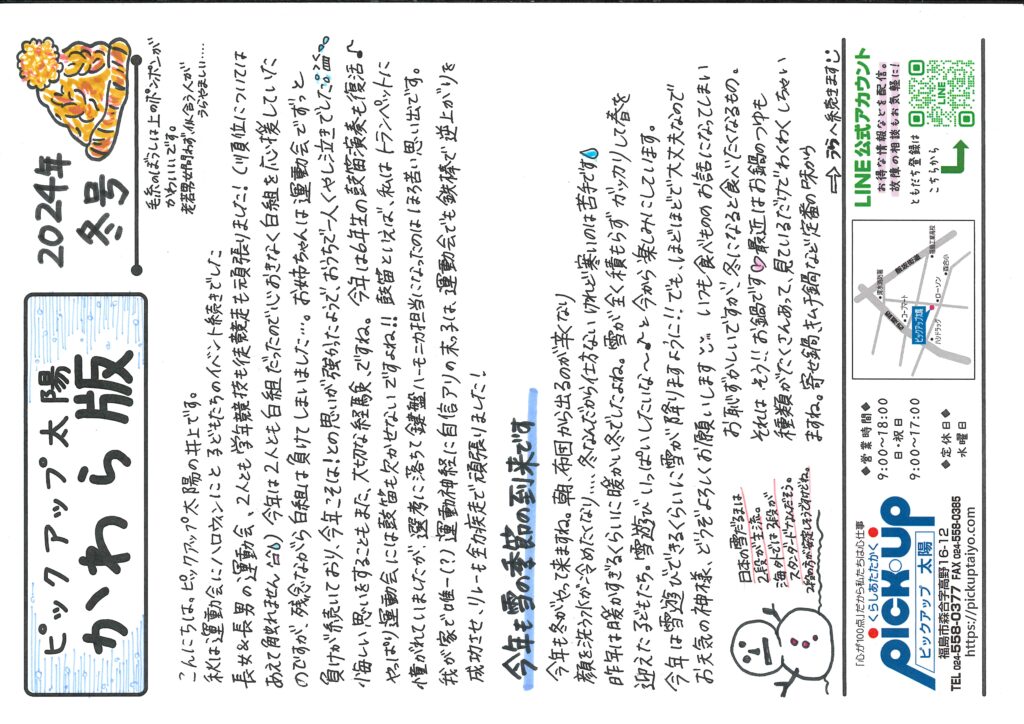 ピックアップ太陽
かわら版
2024年
冬号
毛糸のぼうしは上のポンポンが
かわいいです。
老若男女問わず、似合う人が
うらやましい……
こんにちは、ピックアップ太陽の井上です。
秋は運動会にハロウィンにと子どもたちのイベント続きでした
長女&長男の運動会、2人とも学年競技も徒競走も頑張りました！（順位については
あえて触れません）今年は2人とも白組だったので心おきなく白組を応援していた
のですが、残念ながら白組は負けてしまいました…。お姉ちゃんは運動会でずっと
負けが続いており、今年こそは！との思いが強かったようで、おうちで一人くやし泣きでした
悔しい思いをすることもまた、大切な経験、ですね。今年は6年生の鼓笛演奏も復活♪
やっぱり運動会には鼓笛も欠かせないですよね!! 鼓笛といえば、私はトランペットに
憧がれていましたが、選考に落ちて鍵盤ハーモニカ担当になったのはほろ苦い思い出です。
我が家で唯一(?)運動神経に自信アリの末っ子は、運動会でも鉄棒で逆上がりを
成功させ、リレーも全力疾走で頑張りました！
今年も雪の季節の到来です
今年も冬がやって来ますね。朝、布団から出るのが辛くなり
顔を洗う水が冷めたくなり…、冬なんだから仕方ないけれど寒いのは苦手です
昨年は暖かすぎるくらいに暖かい冬でしたよね。雪が全く積もらずガッカリして春を
迎えた子どもたち。雪遊びいっぱいしたいな〜♪と今から楽しみにしています。
今年は雪遊びできるくらいに雪が降りますように!!でも、ほどほどで大丈夫なので
お天気の神様、どうぞよろしくお願いします いつも食べもののお話になってしまい
お恥ずかしいですが、冬になると食べたくなるもの。
それは そう!! お鍋です♡最近はお鍋のつゆも
種類がたくさんあって、見ているだけでわくわくしちゃい
ますね。寄せ鍋、キムチ鍋など定番の味から
⇒うらへ続きます
日本の雪だるまは
2段が主流。
海外では3段が
スタンダードなんだそう。
2段の方が安定しそうだけどね。
「心が100点」だから私たちは心仕事
くらしあたたかく
PICK・UP
ピックアップ 太陽
福島市森合字高野16-12
TEL 024-558-0377 FAX 024-558-0385
https://pickuptaiyo.com
◆営業時間◆
9:00〜18:00
日・祝日
9:00〜17:00
◆定休日◆
水曜日
ピックアップ太陽
コープマート
ハシドラッグ
ローソン
森合小
福島工業高校
飯坂街道
LINE公式アカウント
お得な情報などを配信。
故障の相談もお気軽に！
ともだち登録は
こちらから
LINE